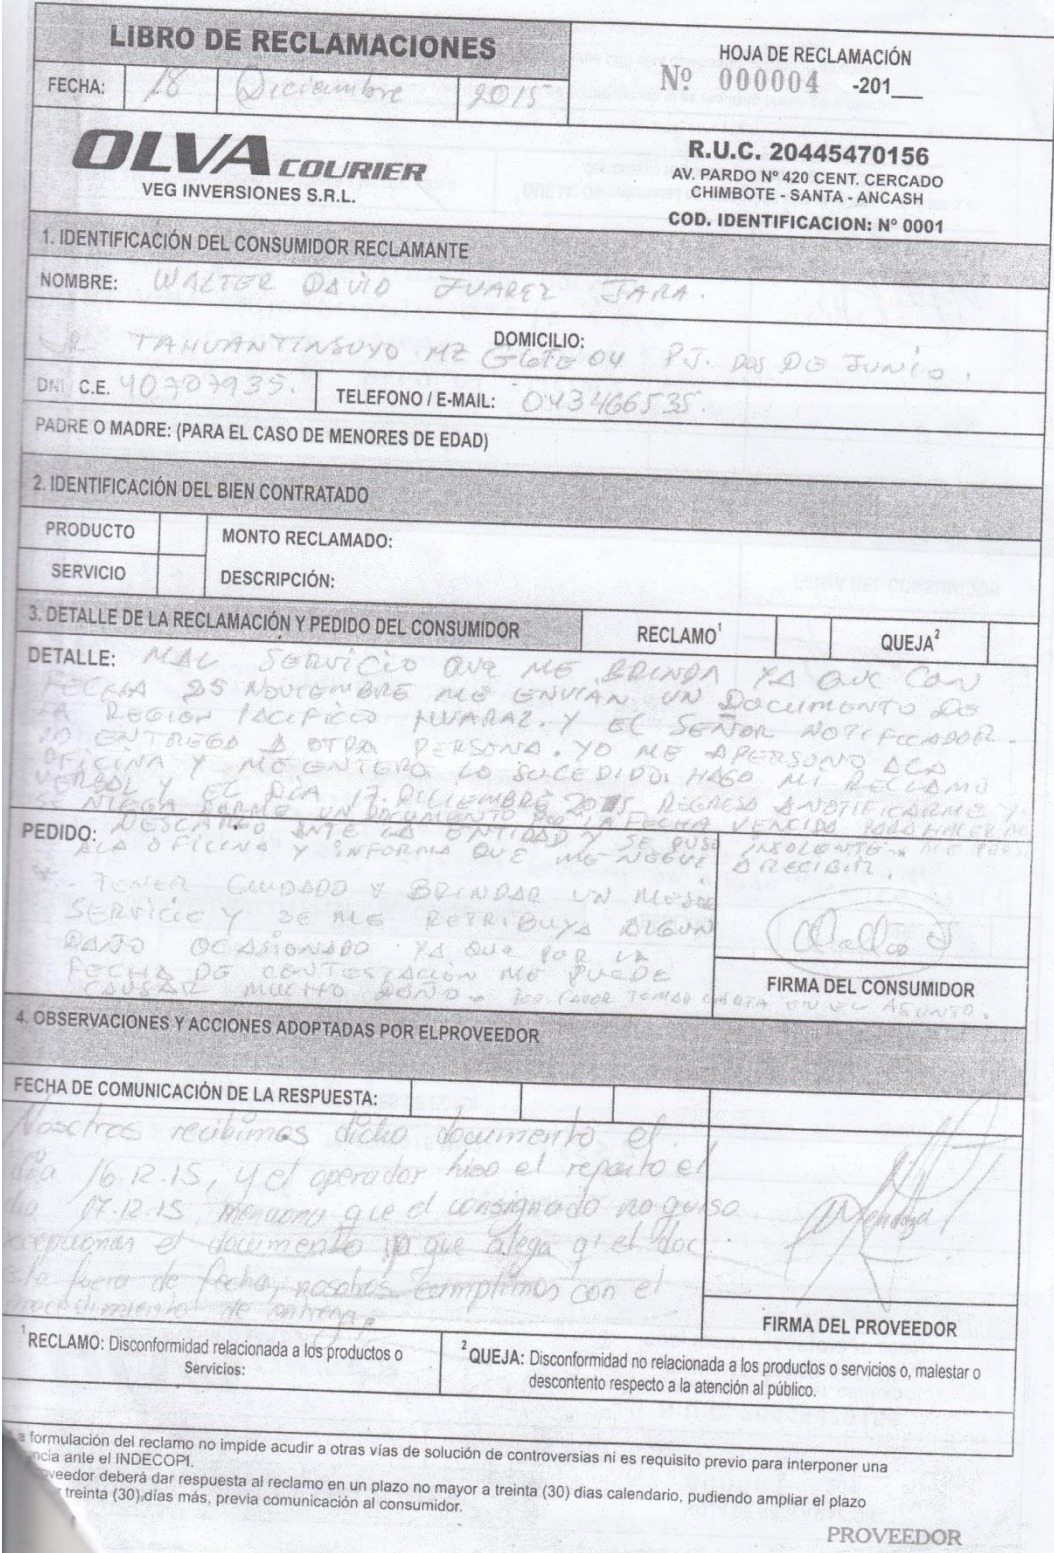 LIBRO DE RECLAMACIONES
HOJA DE RECLAMACIÓN
FECHA: 18 Diciembre 2015
Nº 000004 -201___
OLVA COURIER
VEG INVERSIONES S.R.L.
R.U.C. 20445470156
AV. PARDO Nº 420 CENT. CERCADO
CHIMBOTE - SANTA - ANCASH
COD. IDENTIFICACION: Nº 0001
1. IDENTIFICACIÓN DEL CONSUMIDOR RECLAMANTE
NOMBRE: WALTER DAVID JUAREZ JARA.
DOMICILIO:
JR TAHUANTINSUYO MZ G LOTE 04 PJ. DOS DE JUNIO.
DNI C.E. 40707935.
TELEFONO / E-MAIL: 043466535.
PADRE O MADRE: (PARA EL CASO DE MENORES DE EDAD)
2. IDENTIFICACIÓN DEL BIEN CONTRATADO
PRODUCTO
MONTO RECLAMADO:
SERVICIO
DESCRIPCIÓN:
3. DETALLE DE LA RECLAMACIÓN Y PEDIDO DEL CONSUMIDOR
RECLAMO¹
QUEJA²
DETALLE: MAL SERVICIO QUE ME BRINDA YA QUE CON
FECHA 25 NOVIEMBRE ME ENVIAN UN DOCUMENTO DE
LA REGION PACIFICO HUARAZ. Y EL SEÑOR NOTIFICADOR
LO ENTREGO A OTRA PERSONA. YO ME APERSONO ALA
OFICINA Y ME ENTERO LO SUCEDIDO. HAGO MI RECLAMO
VERBAL Y EL DIA 17. DICIEMBRE 2015 REGRESO A NOTIFICARME Y
SE NIEGA DARME UN DOCUMENTO POR LA FECHA VENCIDA PARA HACER MI
PEDIDO: DESCARGO ANTE LA ENTIDAD Y SE PUSO INSOLENTE.
ALA OFICINA Y INFORMA QUE ME NEGUE A RECIBIR.
TENER CUIDADO Y BRINDAR UN MEJOR
SERVICIO Y SE ME RETRIBUYA ALGUN
DAÑO OCASIONADO YA QUE POR LA
FECHA DE CONTESTACION ME PUEDE
CAUSAR MUCHO DAÑO. POR FAVOR TOMAR CARTA EN EL ASUNTO.
FIRMA DEL CONSUMIDOR
4. OBSERVACIONES Y ACCIONES ADOPTADAS POR ELPROVEEDOR
FECHA DE COMUNICACIÓN DE LA RESPUESTA:
Nosotros recibimos dicho documento el
día 16.12.15, y el operador hiso el reparto el
dia 17.12.15, menciona que el consignado no quiso
recepcionar el documento ya que alega q' el doc
esta fuera de fecha, nosotros cumplimos con el
procedimiento de entrega.
FIRMA DEL PROVEEDOR
¹RECLAMO: Disconformidad relacionada a los productos o
Servicios:
²QUEJA: Disconformidad no relacionada a los productos o servicios o, malestar o
descontento respecto a la atención al público.
a formulación del reclamo no impide acudir a otras vías de solución de controversias ni es requisito previo para interponer una
ncia ante el INDECOPI.
veedor deberá dar respuesta al reclamo en un plazo no mayor a treinta (30) dias calendario, pudiendo ampliar el plazo
r treinta (30) días más, previa comunicación al consumidor.
PROVEEDOR